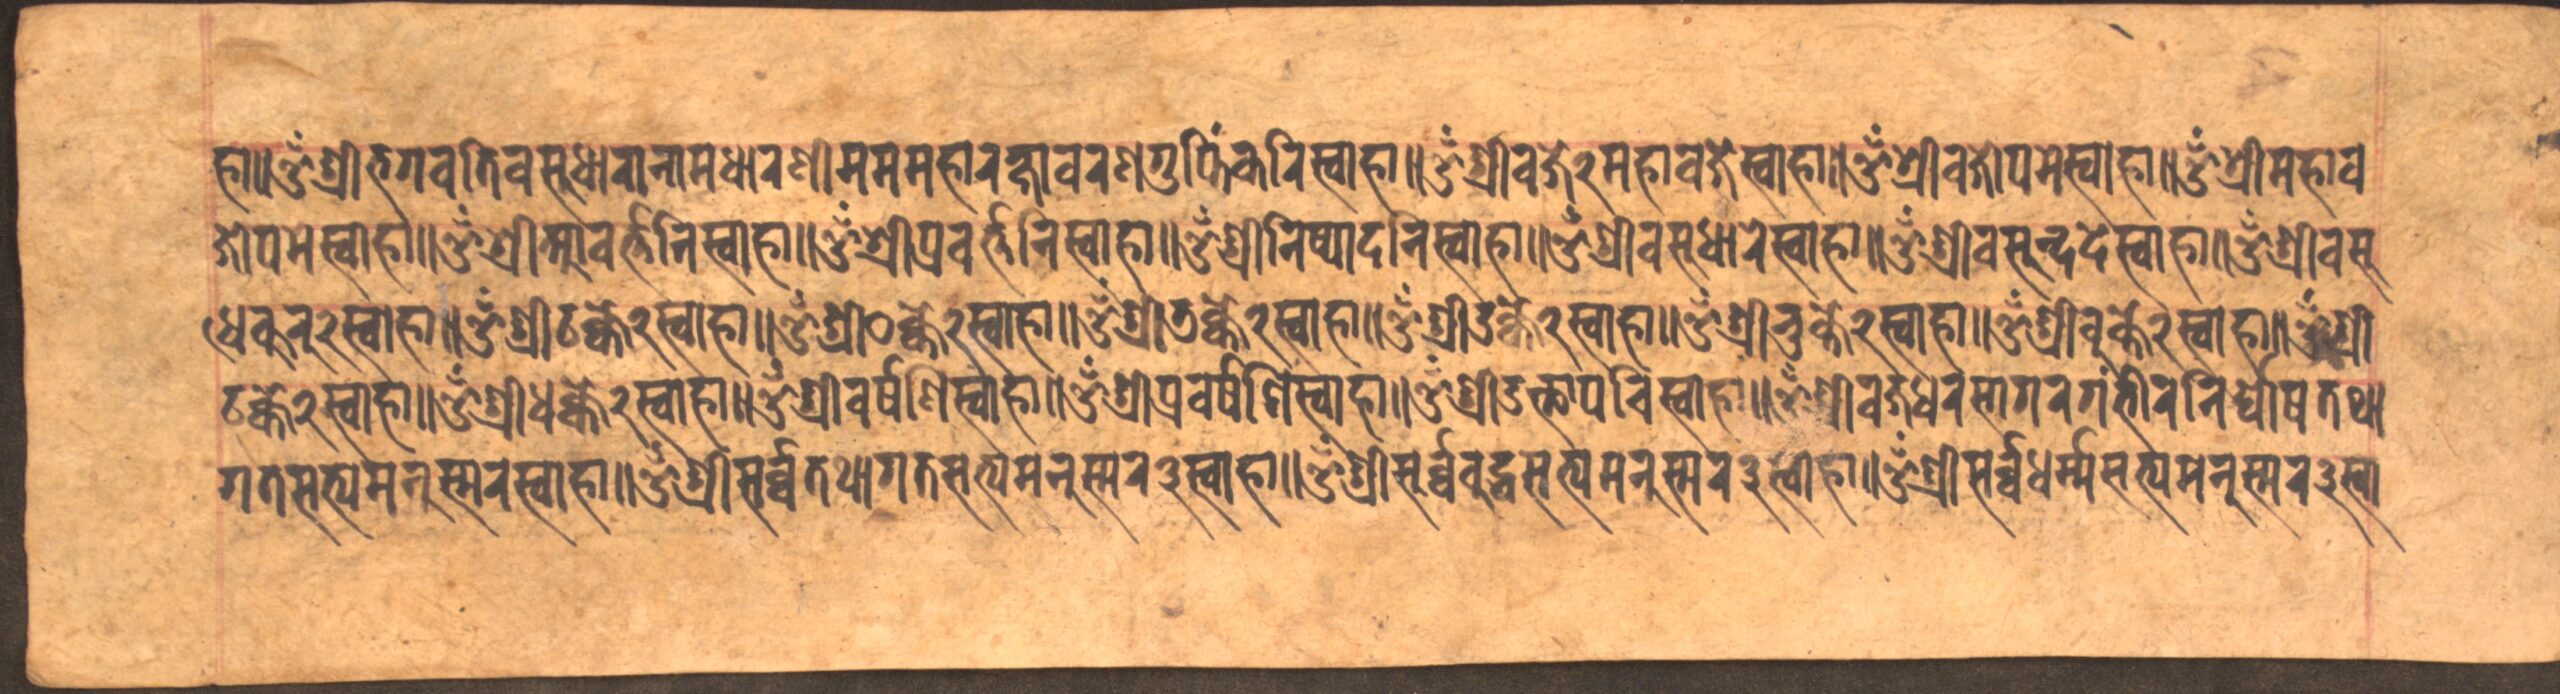 हा॥ॐश्रीभगवतिवसुधारानामधारणीमममहारक्षावरणगुप्तिंकरिस्वाहा॥ॐश्रीवज्रे२महावज्रेस्वाहा॥ॐश्रीवज्रोपमेस्वाहा॥ॐश्रीमहाव
ज्रोपमेस्वाहा॥ॐश्रीआवर्त्तनिस्वाहा॥ॐश्रीप्रवर्त्तनिस्वाहा॥ॐश्रीनिष्पादनिस्वाहा॥ॐश्रीवसुधारेस्वाहा॥ॐश्रीवसुन्ददेस्वाहा॥ॐश्रीवसु
स्वाहा॥ॐश्रीटक्के२स्वाहा॥ॐश्रीठक्के२स्वाहा॥ॐश्री स्वाहा॥ॐश्रीउक्के२स्वाहा॥ॐश्रीनुक्के२स्वाहा॥ॐश्रीवुक्के२स्वाहा॥ॐश्री
टक्के२स्वाहा॥ॐश्रीधक्के२स्वाहा॥ॐश्रीवर्षणिस्वाहा॥ॐश्रीप्रवर्षणिस्वाहा॥ॐश्री स्वाहा॥ॐश्रीवज्रधरसागरगंभीरनिर्घोषतथा
गतसत्यमनुस्मरस्वाहा॥ॐश्रीसर्व्वतथागतसत्यमनुस्मर३स्वाहा॥ॐश्रीसर्व्वबुद्धसत्यमनुस्मर३स्वाहा॥ॐश्रीसर्व्वधर्म्मसत्यमनुस्मर३स्वा